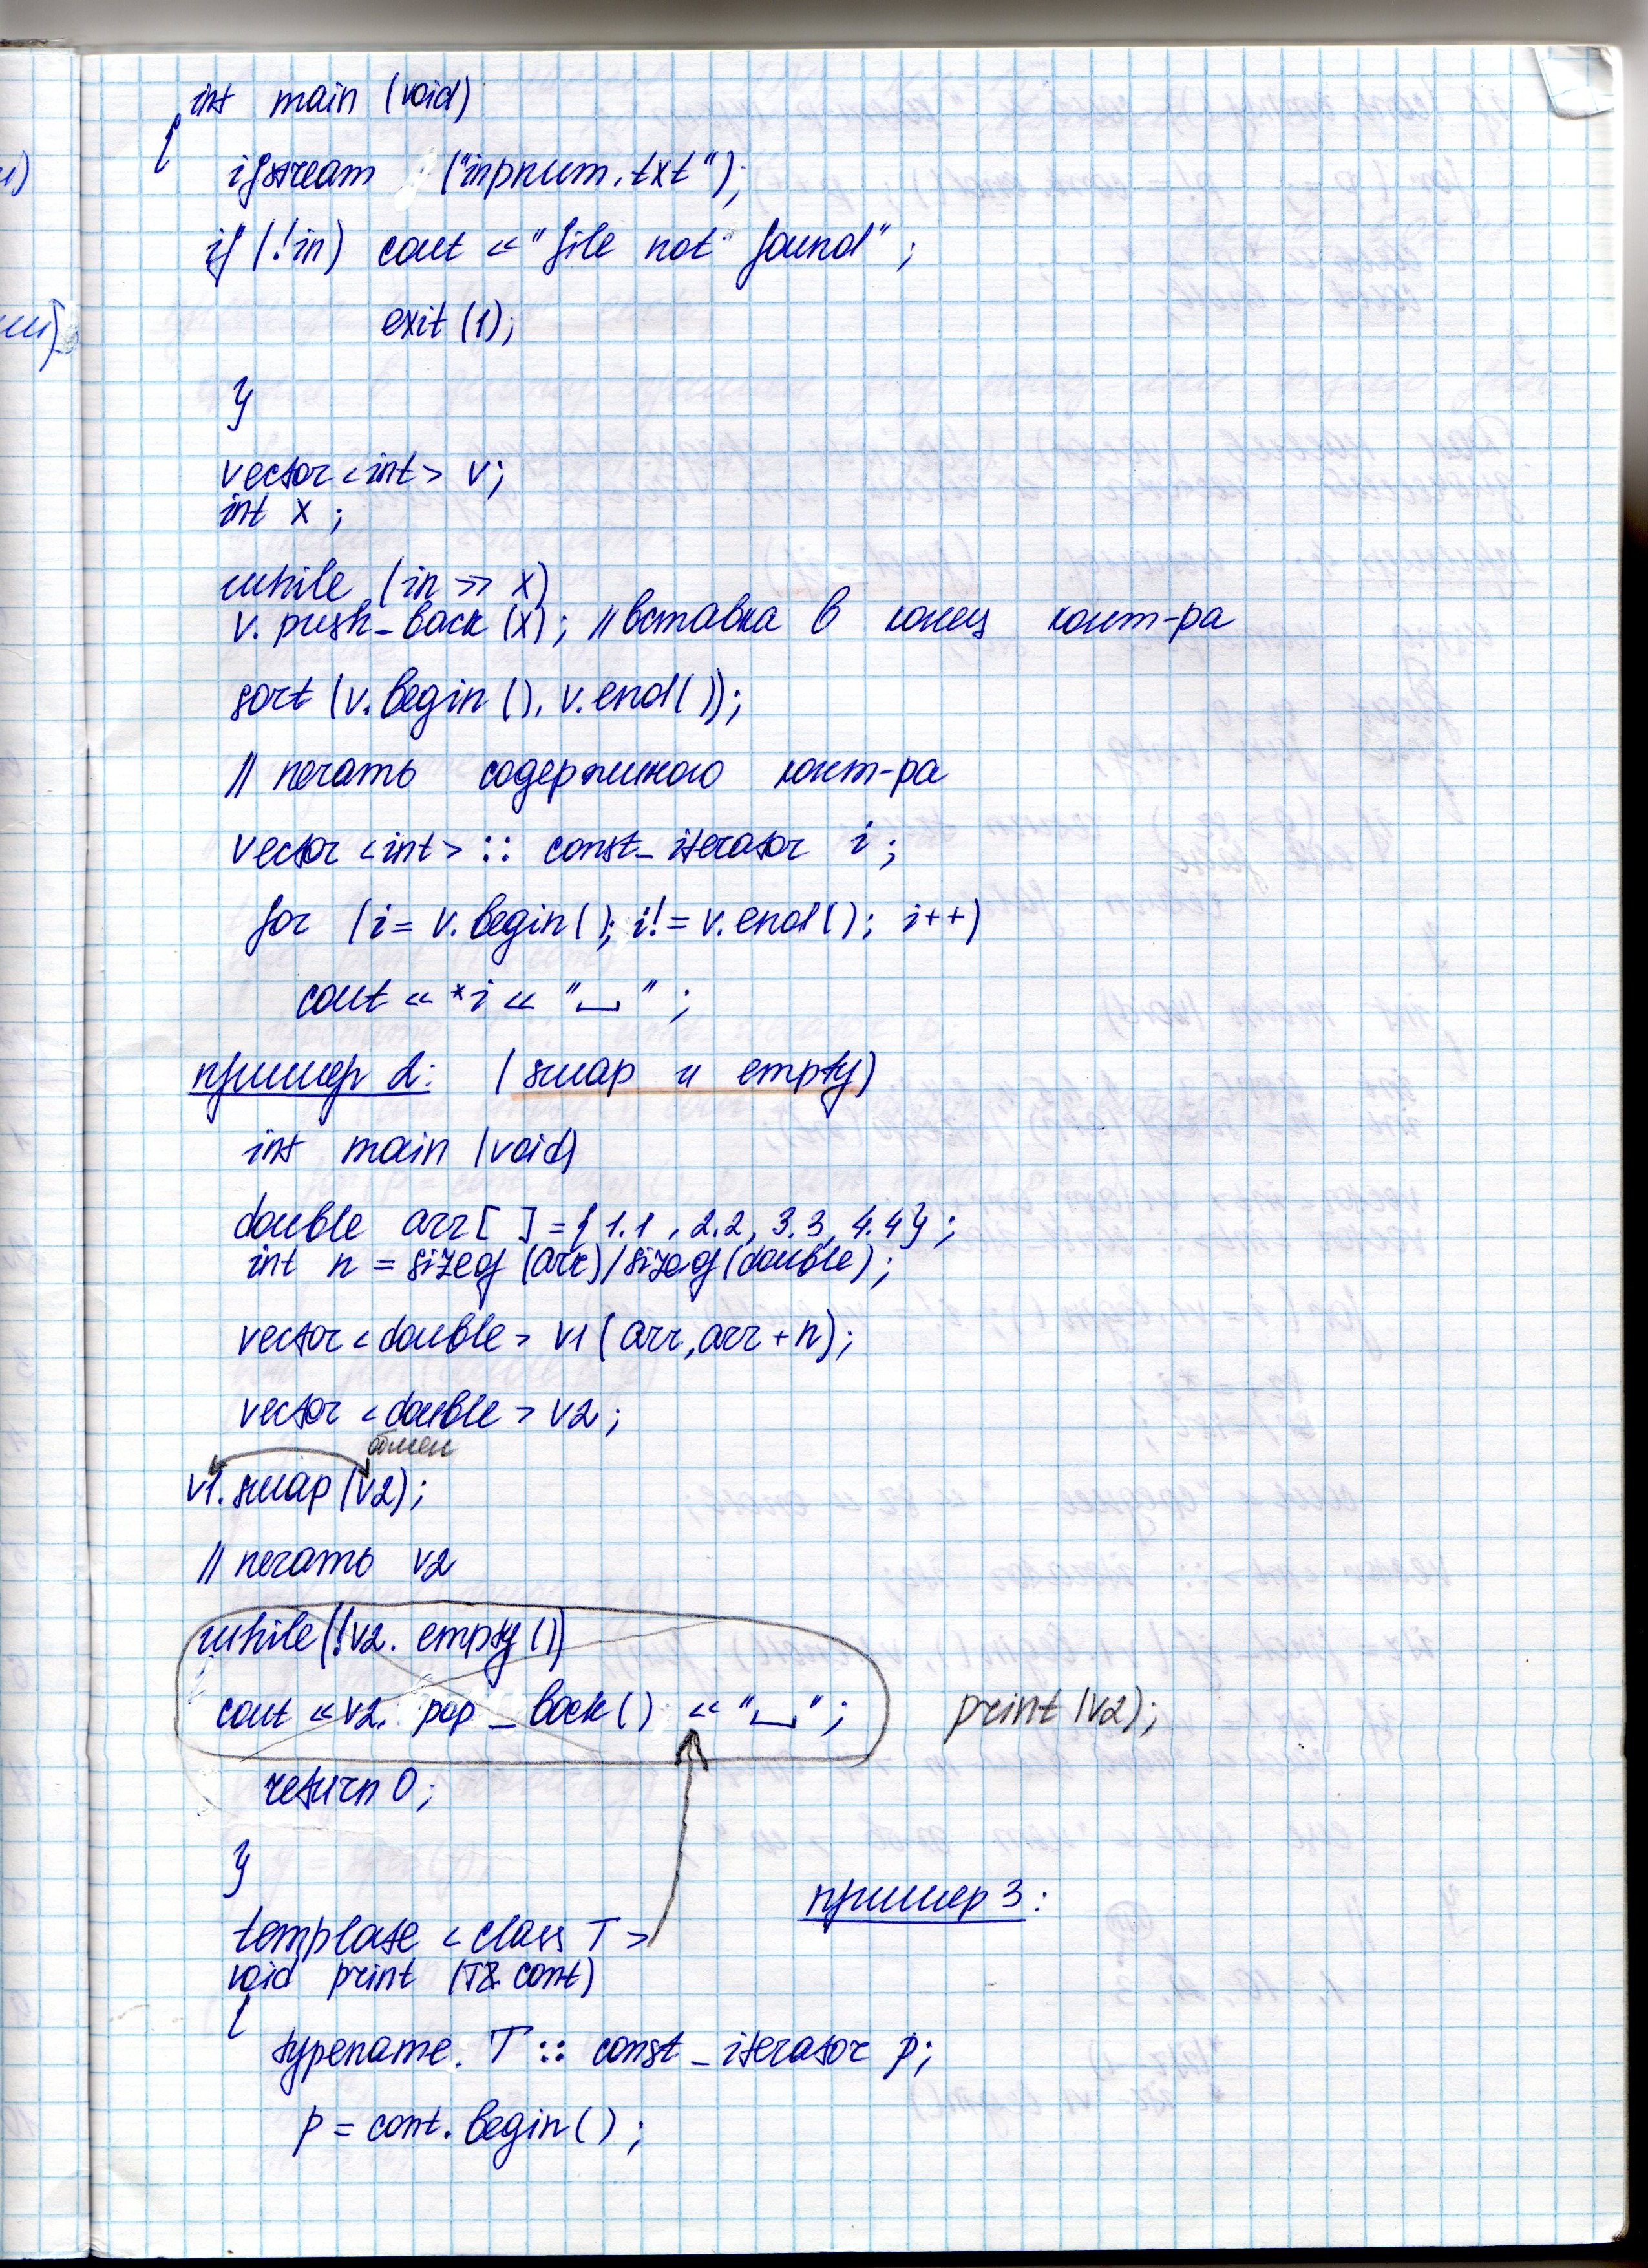 int main (void)
{
ifstream ("inpnum.txt");
if (!in) cout << "file not found";
exit (1);
}
vector <int> v;
int x;
while (in >> x)
v. push_back (x); // вставка в конец конт-ра
sort (v.begin (), v.end());
// печать содержимого конт-ра
vector <int> :: const_iterator i;
for (i = v.begin(); i != v.end(); i++)
cout << *i << "␣";
пример 2: (swap и empty)
int main (void)
double arr[ ] = {1.1, 2.2, 3.3, 4.4};
int n = sizeof (arr)/sizeof(double);
vector <double> v1 (arr, arr + n);
vector <double> v2;
обмен
v1.swap (v2);
// печать v2
while (!v2. empty ()
cout << v2. pop_back() << "␣"; print (v2);
return 0;
}
пример 3:
template <class T>
void print (T& cont)
{
typename T :: const_iterator p;
p = cont.begin();